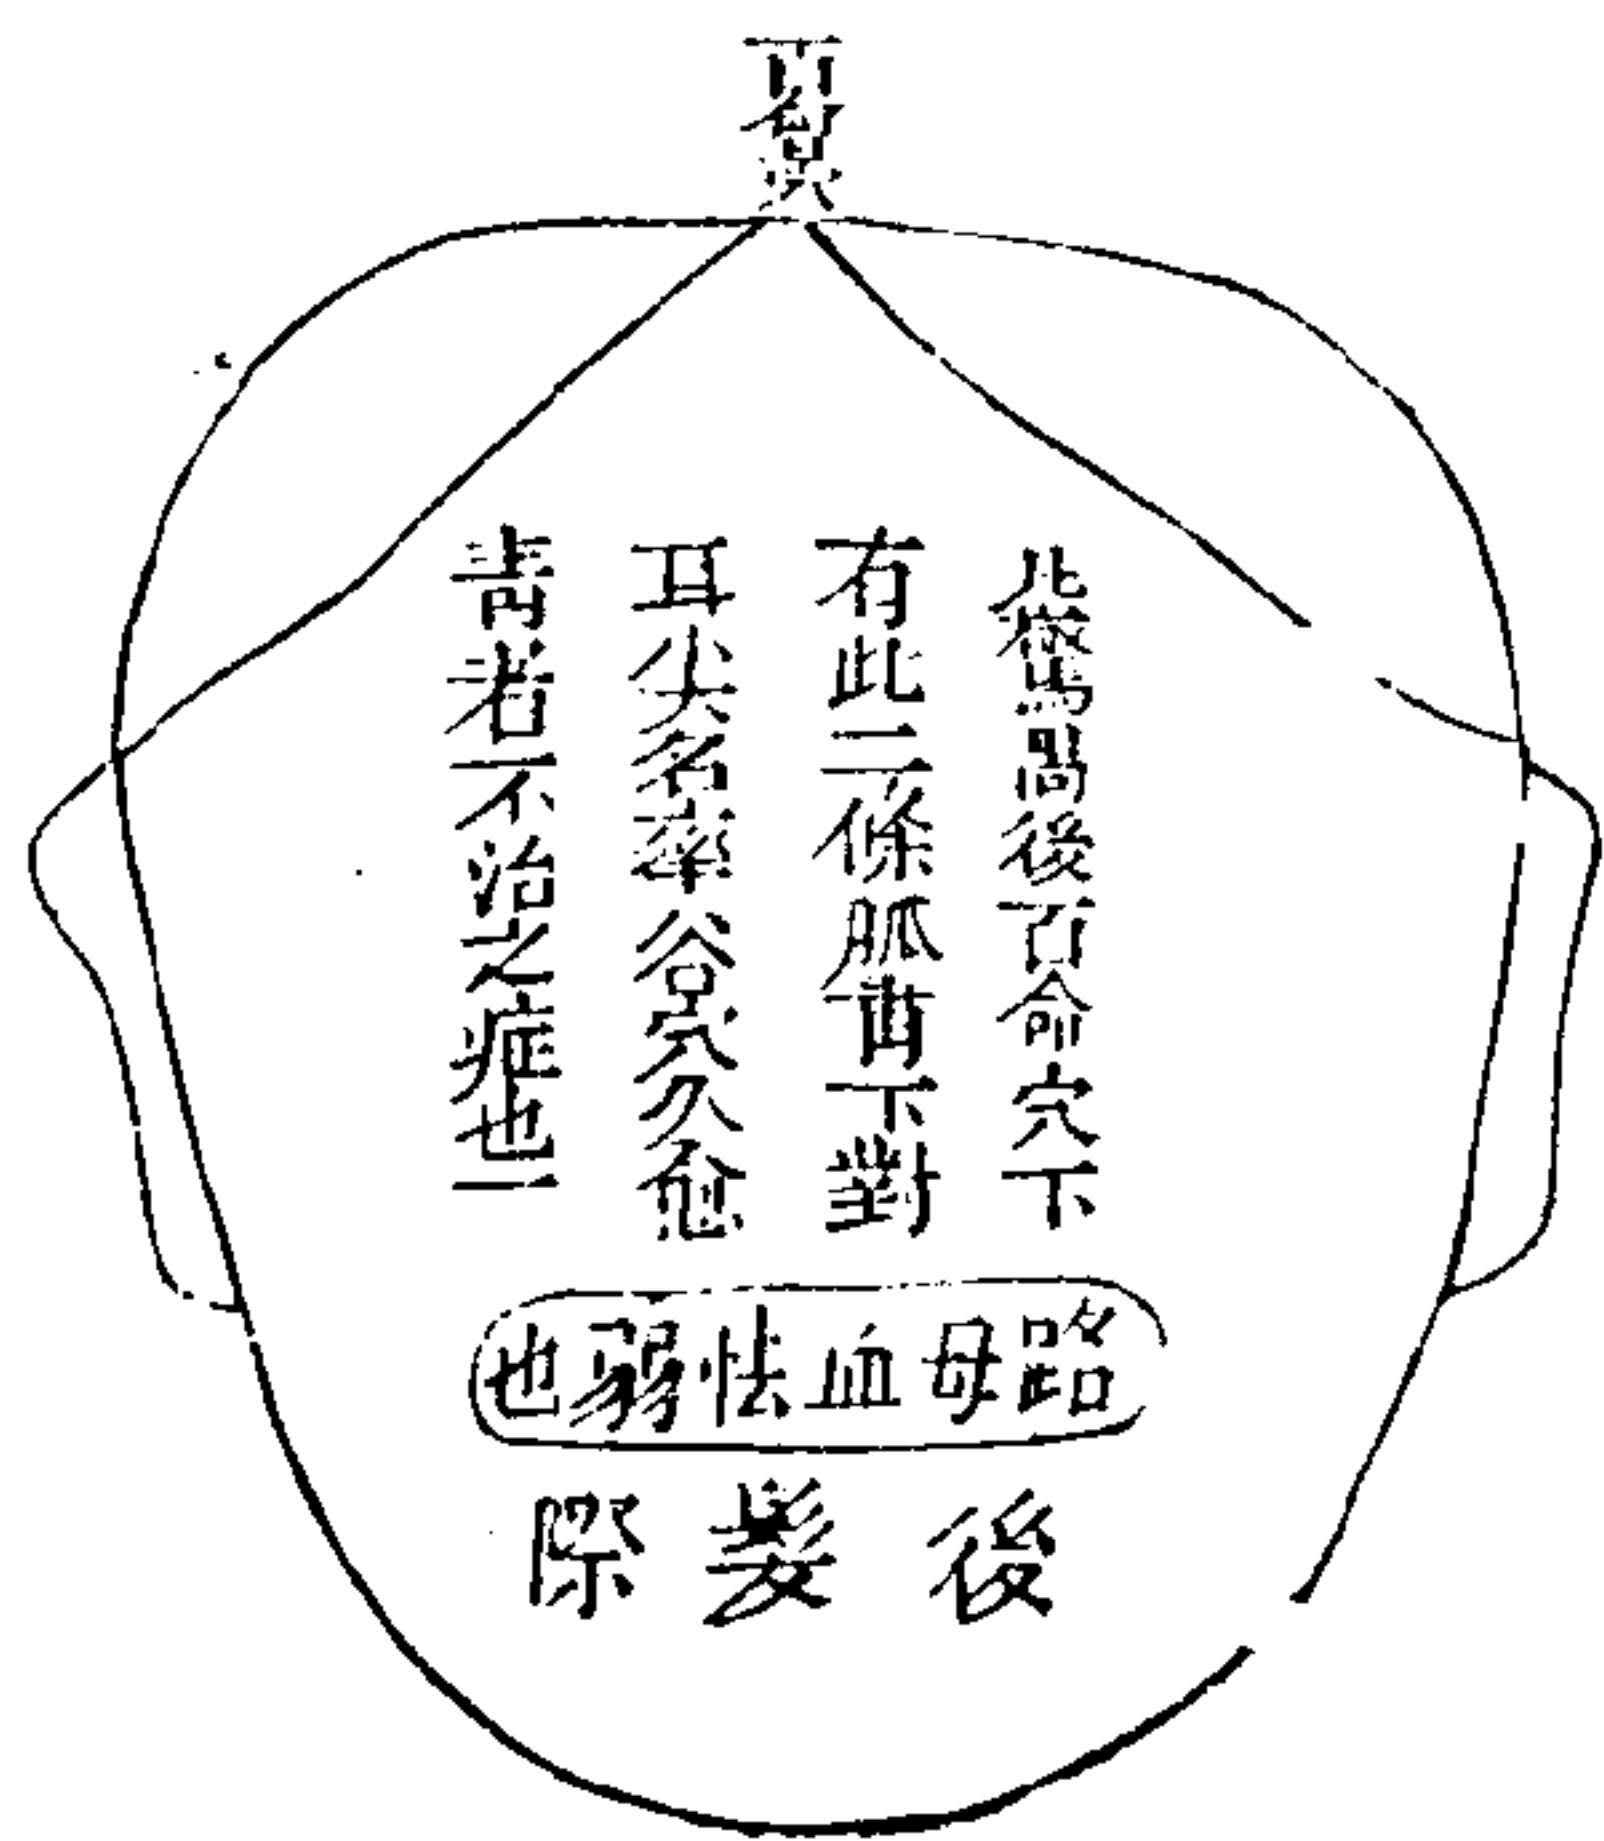 百會穴
此驚咼後百命穴下
有此二條脈下對
耳尖名率谷穴久愈
青者不治之症也一
路母血怯弱也
後髮際